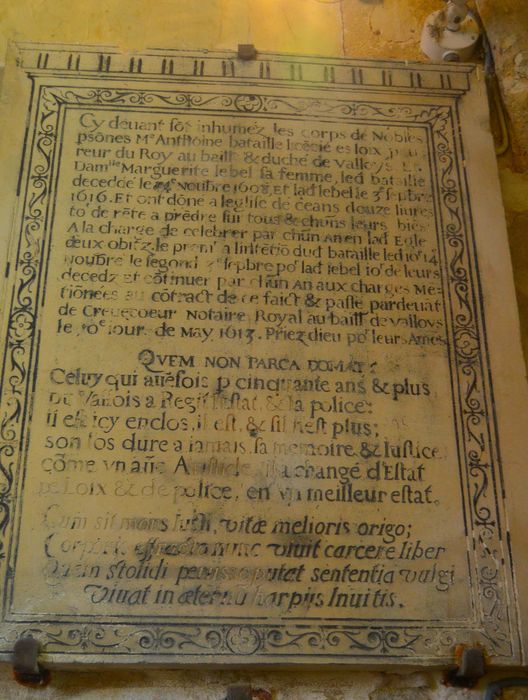 Cy devant sõt inhumez les corps de Nobles
psõnes Mᵉ Anthoine bataille licẽcié es loix
reur du Roy au baill & duché de valloys. Et
Damˡˡᵉ Marguerite lebel sa femme, led bataille
decedé le 14ᵉ Noubre 1608, Et lad lebel le 3ᵉ sepbre
1616. Et ont dõné a leglise de ceans douze liures
toˢ de rẽte a prẽdre sur tous & chũns leurs biẽs
A la charge de celebrer par chũn An en lad Egle
deux obitz, le premʳ a lintẽtiõ dud bataille led joʳ 14
Noubre le segond 3ᵉ sepbre poʳ lad lebel joʳ de leurs
decedz et cõtinuer par chũn An aux charges Me-
tiõnées au cõtract de ce faict & passé pardeuãt
de Creuecoeur Notaire Royal au baill de valloys
le 10ᵉ iour de May 1613. Priez dieu poʳ leurs Ames
QVEM NON PARCA DOMAT?
Celuy qui autẽfois p cinquante ans & plus
Du Valois a Regi lestat, & la police:
il est icy enclos, il est, & sil nest plus;
son los dure a iamais, sa memoire, & Iustice;
cõme vn auẽ Aristide, il a changé d'Estat
de Loix & de police, en vn meilleur estat.
Cum sit mons luchi, vitæ melioris origo;
Corporis nunc viuit carcere liber
Quem stolidi putat sententia vulgi
Viuat in æternũ harpijs Inuitis.